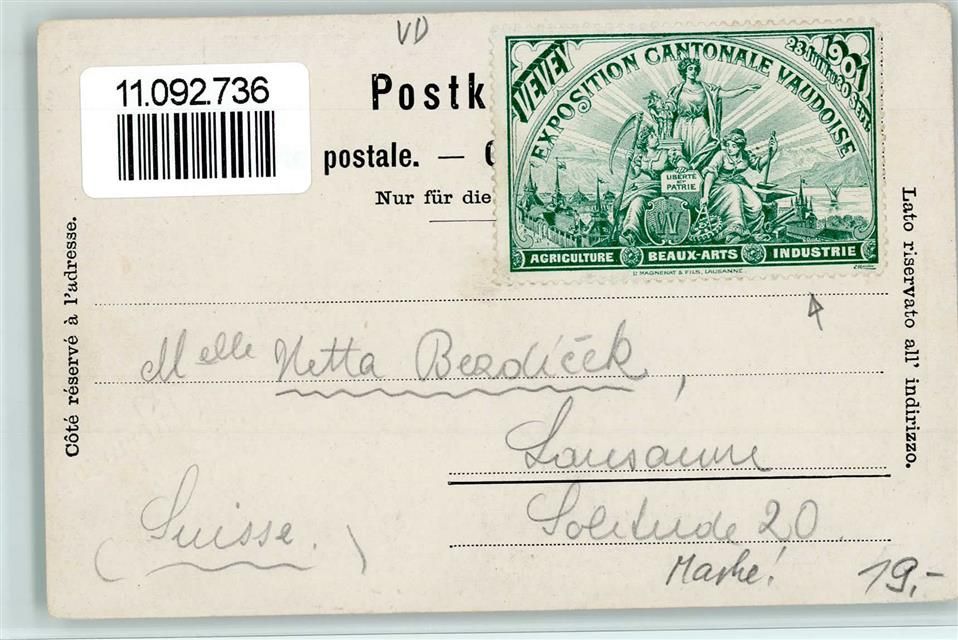 VD
11.092.736
Postk
postale. —
Nur für die
VEVEY
EXPOSITION CANTONALE VAUDOISE
1901
LIBERTÉ
ET
PATRIE
AGRICULTURE BEAUX-ARTS INDUSTRIE
MAGNENAT & FILS, LAUSANNE.
Côté réservé à l'adresse.
Lato riservato all' indirizzo.
Melle Netta Bezdíček,
Lausanne
Solitude 20
(Suisse.)
Marke!
19,-